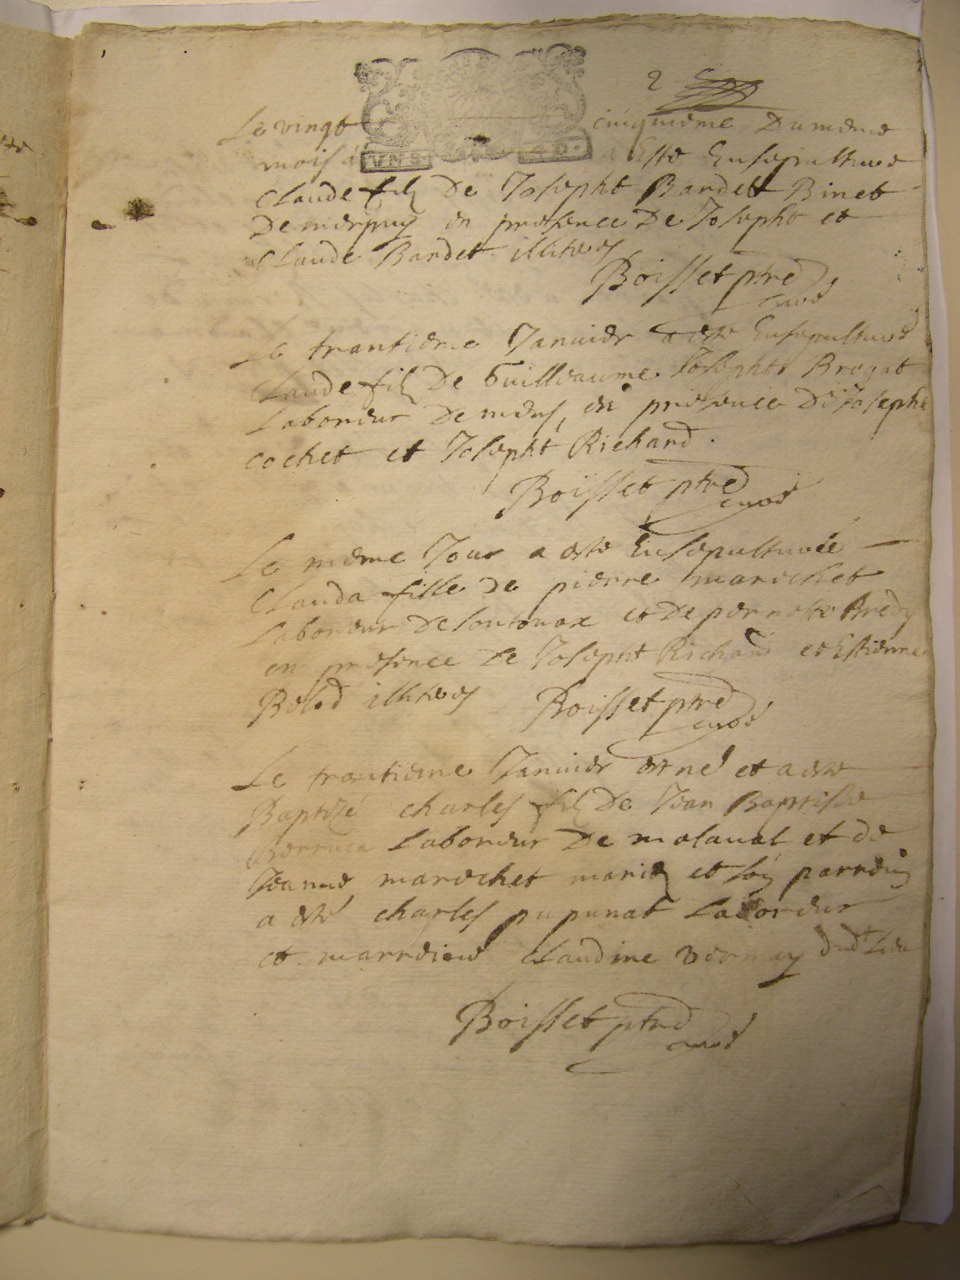 2
Le vingt cinquieme du meme
mois a este Ensepulturé
Claude fils De Josepht Bardet Binet
De en presence De Josepht et
Claude Bardet illiteres
Boisset ptre
curé
Le trantieme Janvier a esté Ensepulturé
Claude fils De Guilleaume Josepht Brogat
Laboreur De en presence De Josepht
cochet et Josepht Richard.
Boisset ptre
curé
Le meme Jour a esté Ensepulturée
Clauda fille de pierre marechet
Laboreur De et De pernette
en presence De Josepht Richard et Estienne
illiteres Boisset ptre
curé
Le trantieme Janvier est né et a esté
Baptizé charles fils De Jean Baptiste
Laboreur De malaval et de
Jeanne marechet mariés et son parrein
a esté charles pupunat Laboreur
et marreine Claudine vermay dud lieu
Boisset ptre
curé